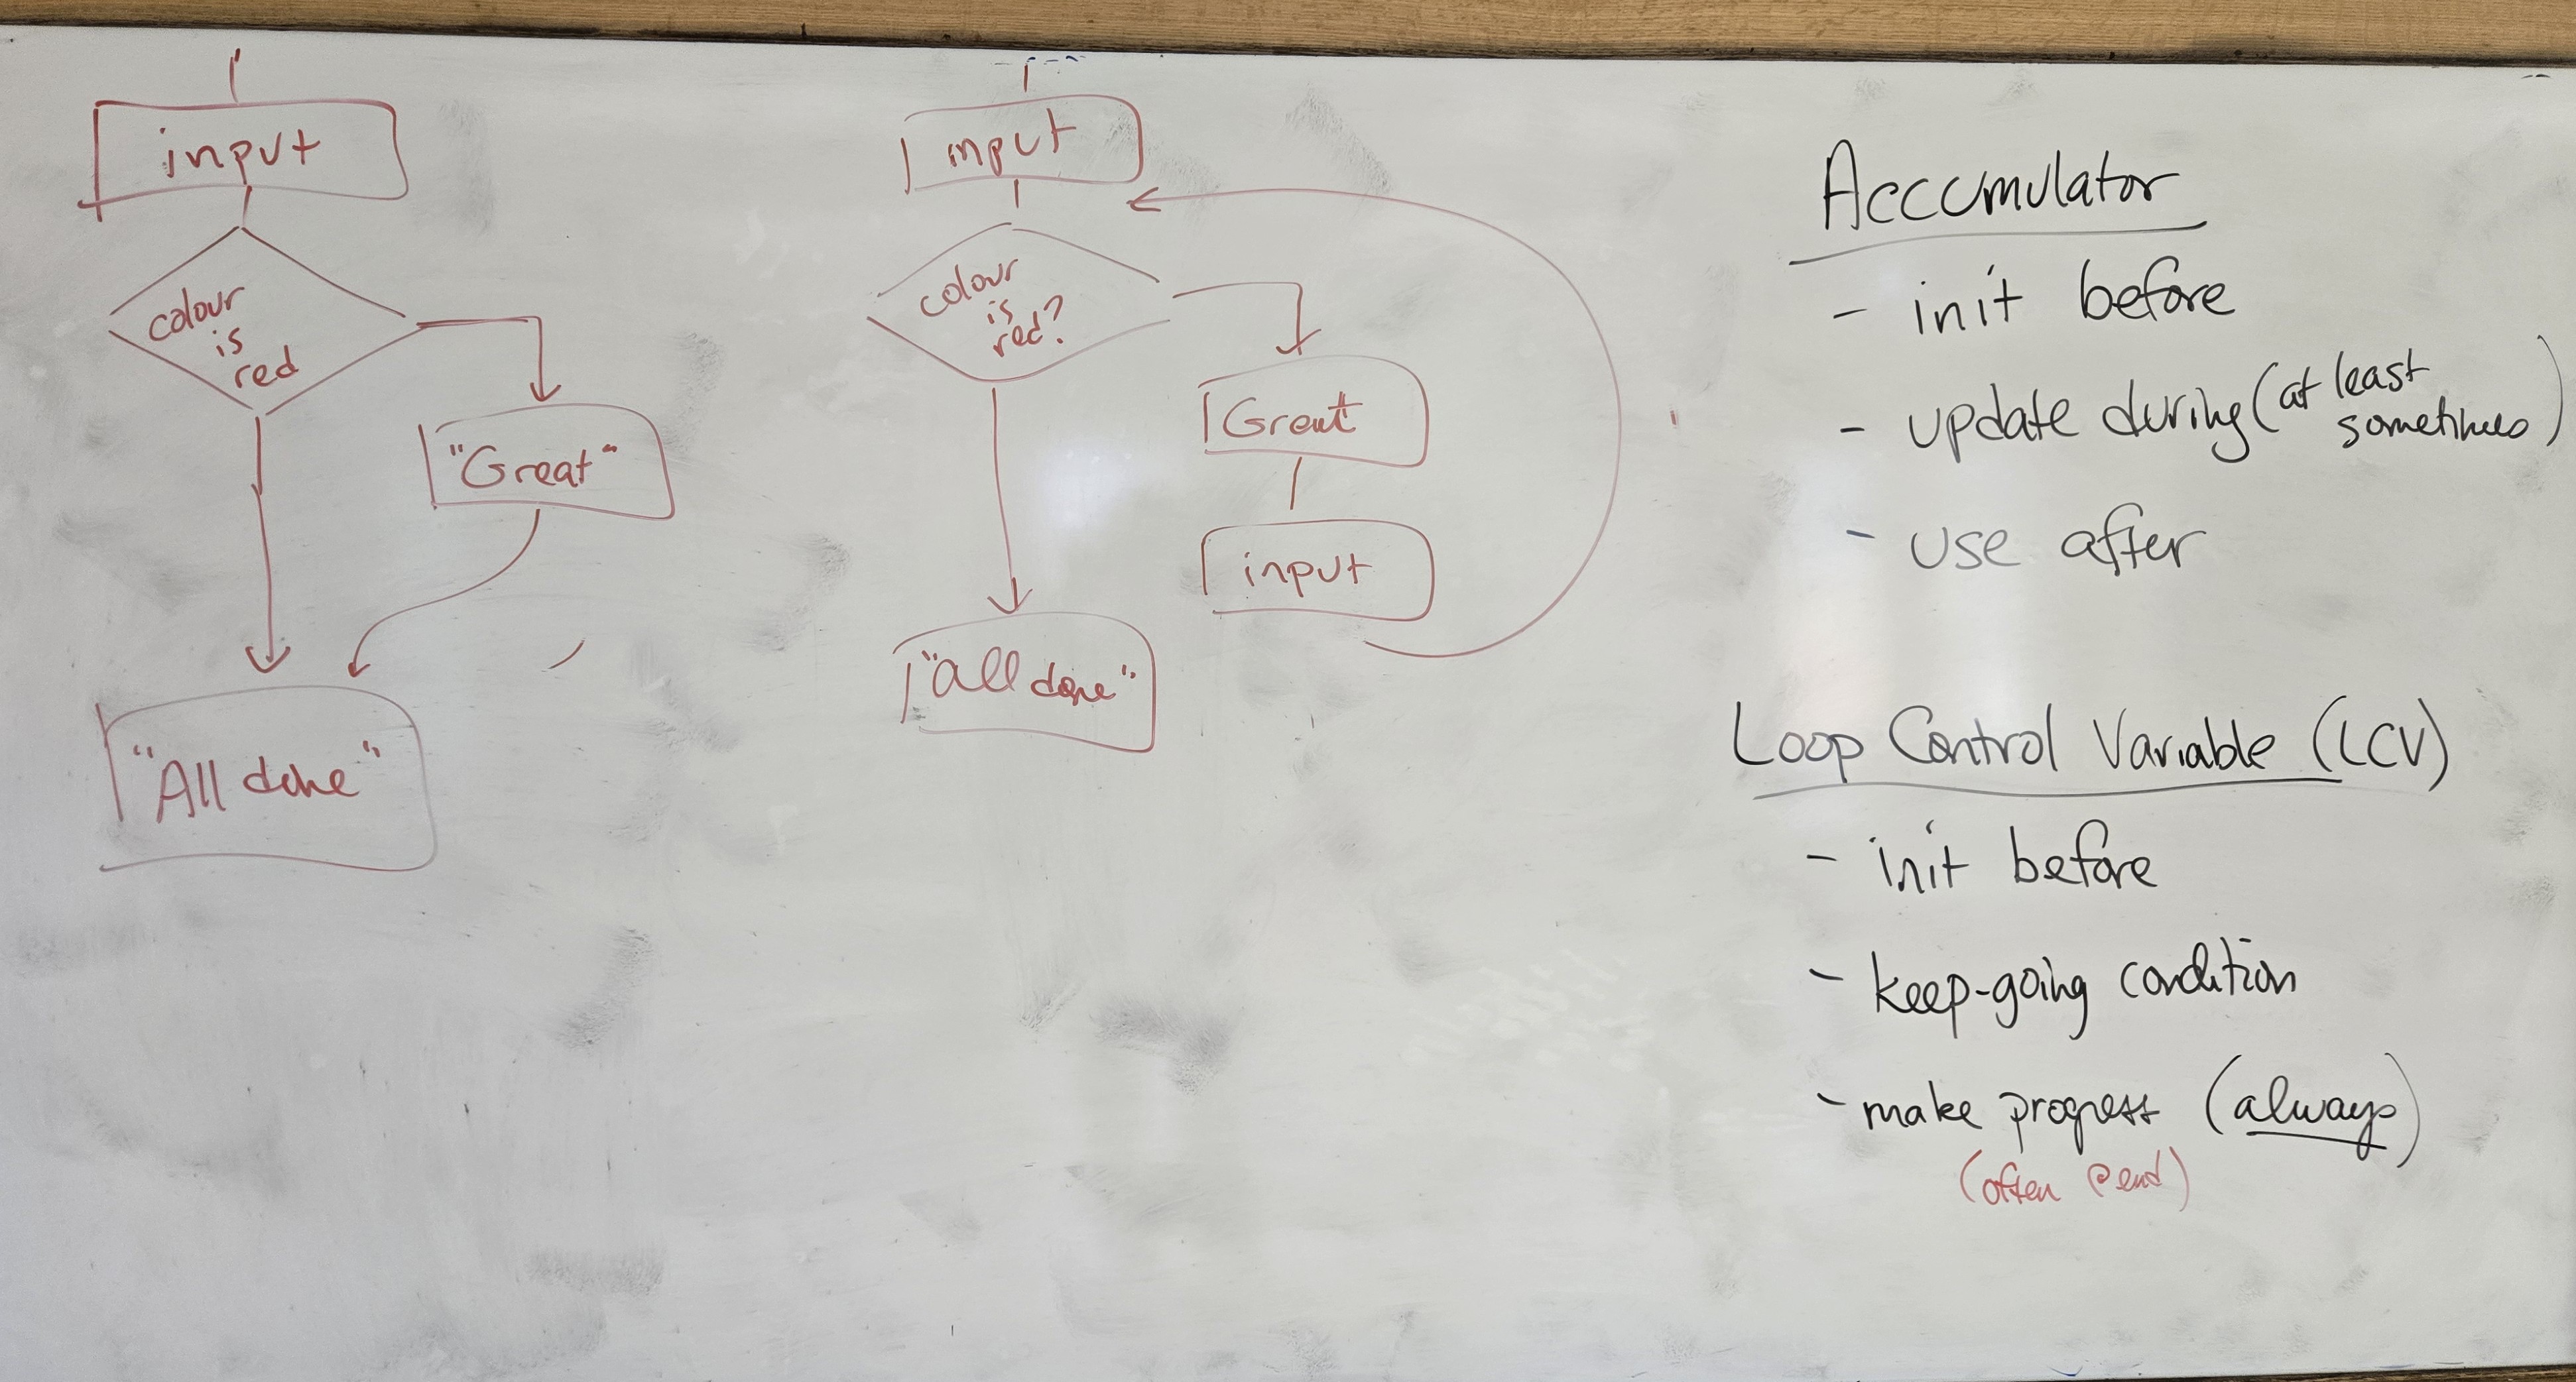 input
colour
is
red
"Great"
"All done"
input
colour
is
red?
Great
input
"all done"
Accumulator
- init before
- update during (at least
sometimes)
- use after
Loop Control Variable (LCV)
- init before
- keep-going condition
- make progress (always)
(often @ end)